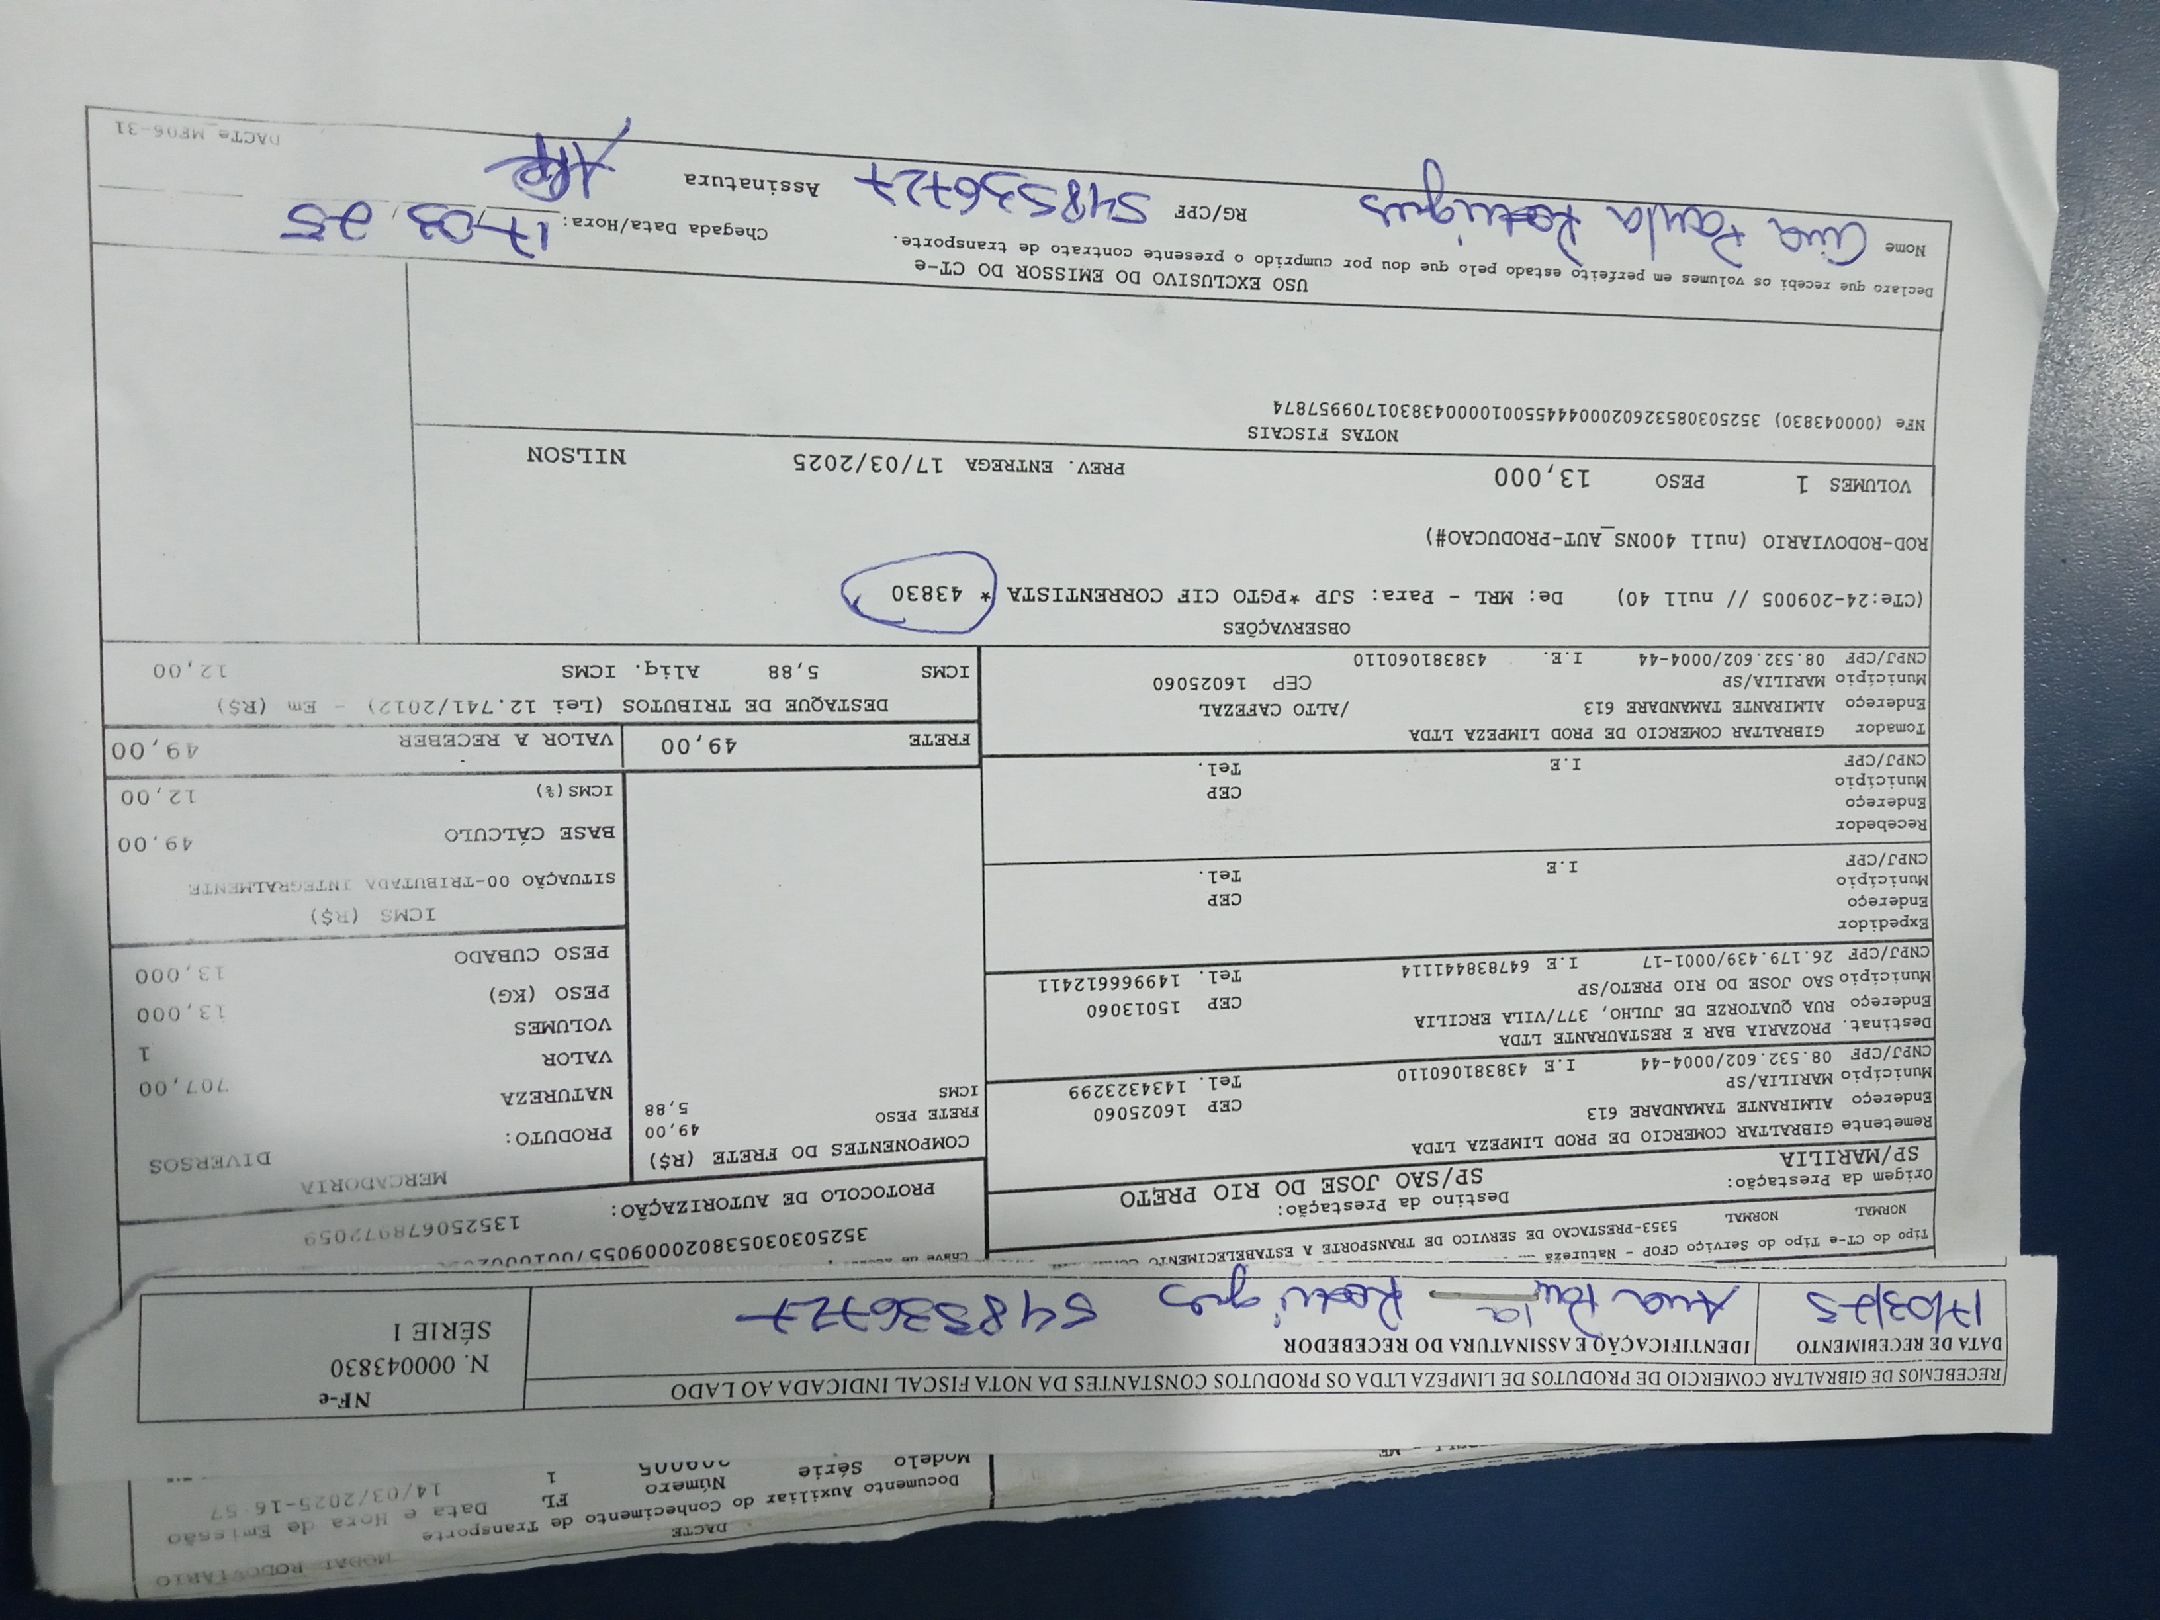 MODAL RODOVIÁRIO
DACTE
Documento Auxiliar do Conhecimento de Transporte
Modelo Série Número FL Data e Hora de Emissão
1 14/03/2025-16:57
RECEBEMOS DE GIBRALTAR COMERCIO DE PRODUTOS DE LIMPEZA LTDA OS PRODUTOS CONSTANTES DA NOTA FISCAL INDICADA AO LADO
NF-e
N. 000043830
SÉRIE 1
DATA DE RECEBIMENTO IDENTIFICAÇÃO E ASSINATURA DO RECEBEDOR
17/03/25 Ana Paula Rodrigues 548536727
Tipo do CT-e Tipo do Serviço CFOP - Natureza
NORMAL NORMAL 5353-PRESTACAO DE SERVICO DE TRANSPORTE A ESTABELECIMENTO
Origem da Prestação: Destino da Prestação:
SP/MARILIA SP/SAO JOSE DO RIO PRETO
PROTOCOLO DE AUTORIZAÇÃO:
135250678972059
Remetente GIBRALTAR COMERCIO DE PROD LIMPEZA LTDA
Endereço ALMIRANTE TAMANDARE 613 CEP 16025060
Município MARILIA/SP Tel. 1434323299
CNPJ/CPF 08.532.602/0004-44 I.E 438381060110
Destinat. PROZARIA BAR E RESTAURANTE LTDA
Endereço RUA QUATORZE DE JULHO, 377/VILA ERCILIA CEP 15013060
Município SAO JOSE DO RIO PRETO/SP Tel. 149966612411
CNPJ/CPF 26.179.439/0001-17 I.E 647838441114
Expedidor
Endereço CEP
Município Tel.
CNPJ/CPF I.E
Recebedor
Endereço CEP
Município Tel.
CNPJ/CPF I.E
Tomador GIBRALTAR COMERCIO DE PROD LIMPEZA LTDA
Endereço ALMIRANTE TAMANDARE 613 /ALTO CAFEZAL
Município MARILIA/SP CEP 16025060
CNPJ/CPF 08.532.602/0004-44 I.E. 438381060110
COMPONENTES DO FRETE (R$)
FRETE PESO 49,00
ICMS 5,88
MERCADORIA
PRODUTO: DIVERSOS
NATUREZA
VALOR 707,00
VOLUMES 1
PESO (KG) 13,000
PESO CUBADO 13,000
ICMS (R$)
SITUAÇÃO 00-TRIBUTADA INTEGRALMENTE
BASE CÁLCULO 49,00
ICMS(%) 12,00
FRETE 49,00 VALOR A RECEBER 49,00
DESTAQUE DE TRIBUTOS (Lei 12.741/2012) - Em (R$)
ICMS 5,88 Aliq. ICMS 12,00
OBSERVAÇÕES
(CTe:24-209005 // null 40) De: MRL - Para: SJP *PGTO CIF CORRENTISTA * 43830
ROD-RODOVIARIO (null 400NS_AUT-PRODUCAO#)
VOLUMES 1 PESO 13,000 PREV. ENTREGA 17/03/2025 NILSON
NOTAS FISCAIS
NFe (000043830) 35250308532602000444550010000438301709957874
USO EXCLUSIVO DO EMISSOR DO CT-e
Declaro que recebi os volumes em perfeito estado pelo que dou por cumprido o presente contrato de transporte.
Chegada Data/Hora: 17/03/25
Nome Ana Paula Rodrigues RG/CPF 548536727 Assinatura
DACTe_MF06-31